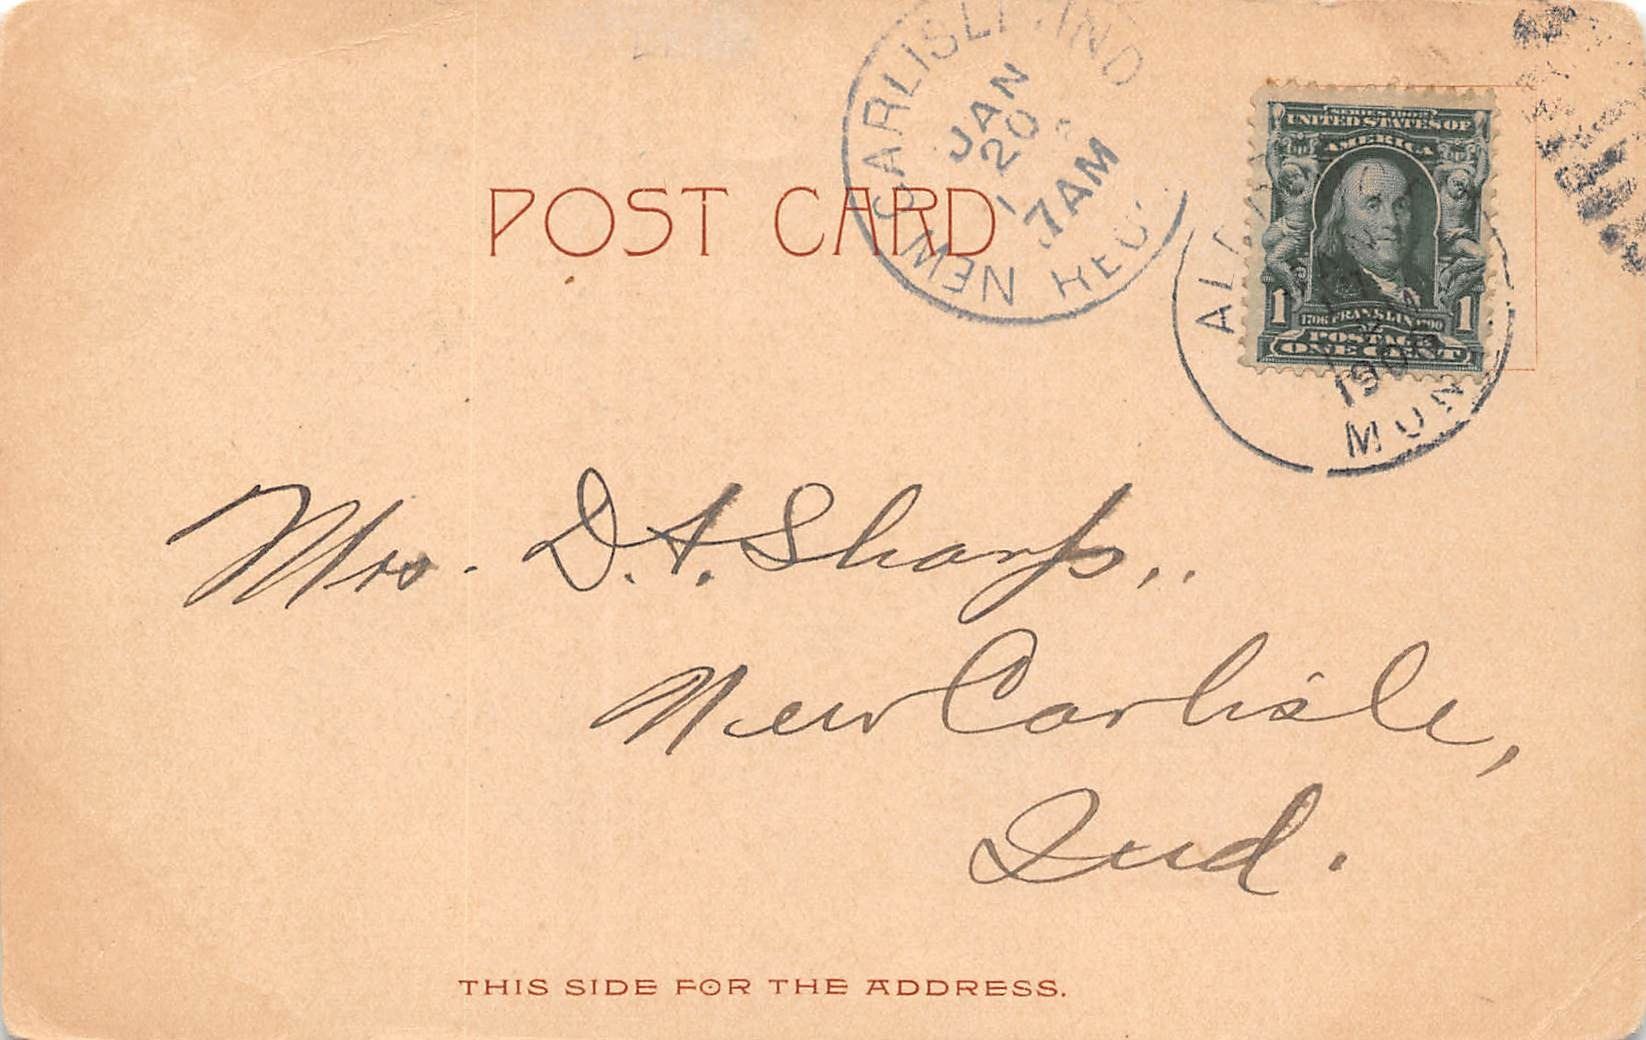 NEW CARLISLE, IND
JAN
20
7 AM
REC'
POST CARD
SERIES 1902
UNITED STATES OF
AMERICA
1 1
1706 FRANKLIN 1790
POSTAGE
ONE CENT
MON
Mrs. D. A. Sharp,.
New Carlisle,
Ind.
THIS SIDE FOR THE ADDRESS.